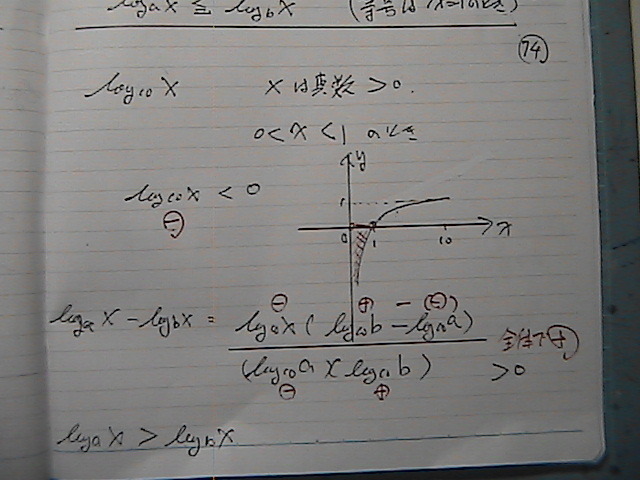 log_a x ≦ log_b x (等号は x=1のとき)
74
log₁₀ x x は真数 > 0.
0 < x < 1 のとき
y
log₁₀ x < 0
⊖
1
0 1 10 x
⊖ ⊕ − (⊖)
log_a x − log_b x = log₁₀ x ( log₁₀ b − log₁₀ a ) / (log₁₀ a)(log₁₀ b) > 0 全体で⊕
⊖ ⊕
log_a x > log_b x